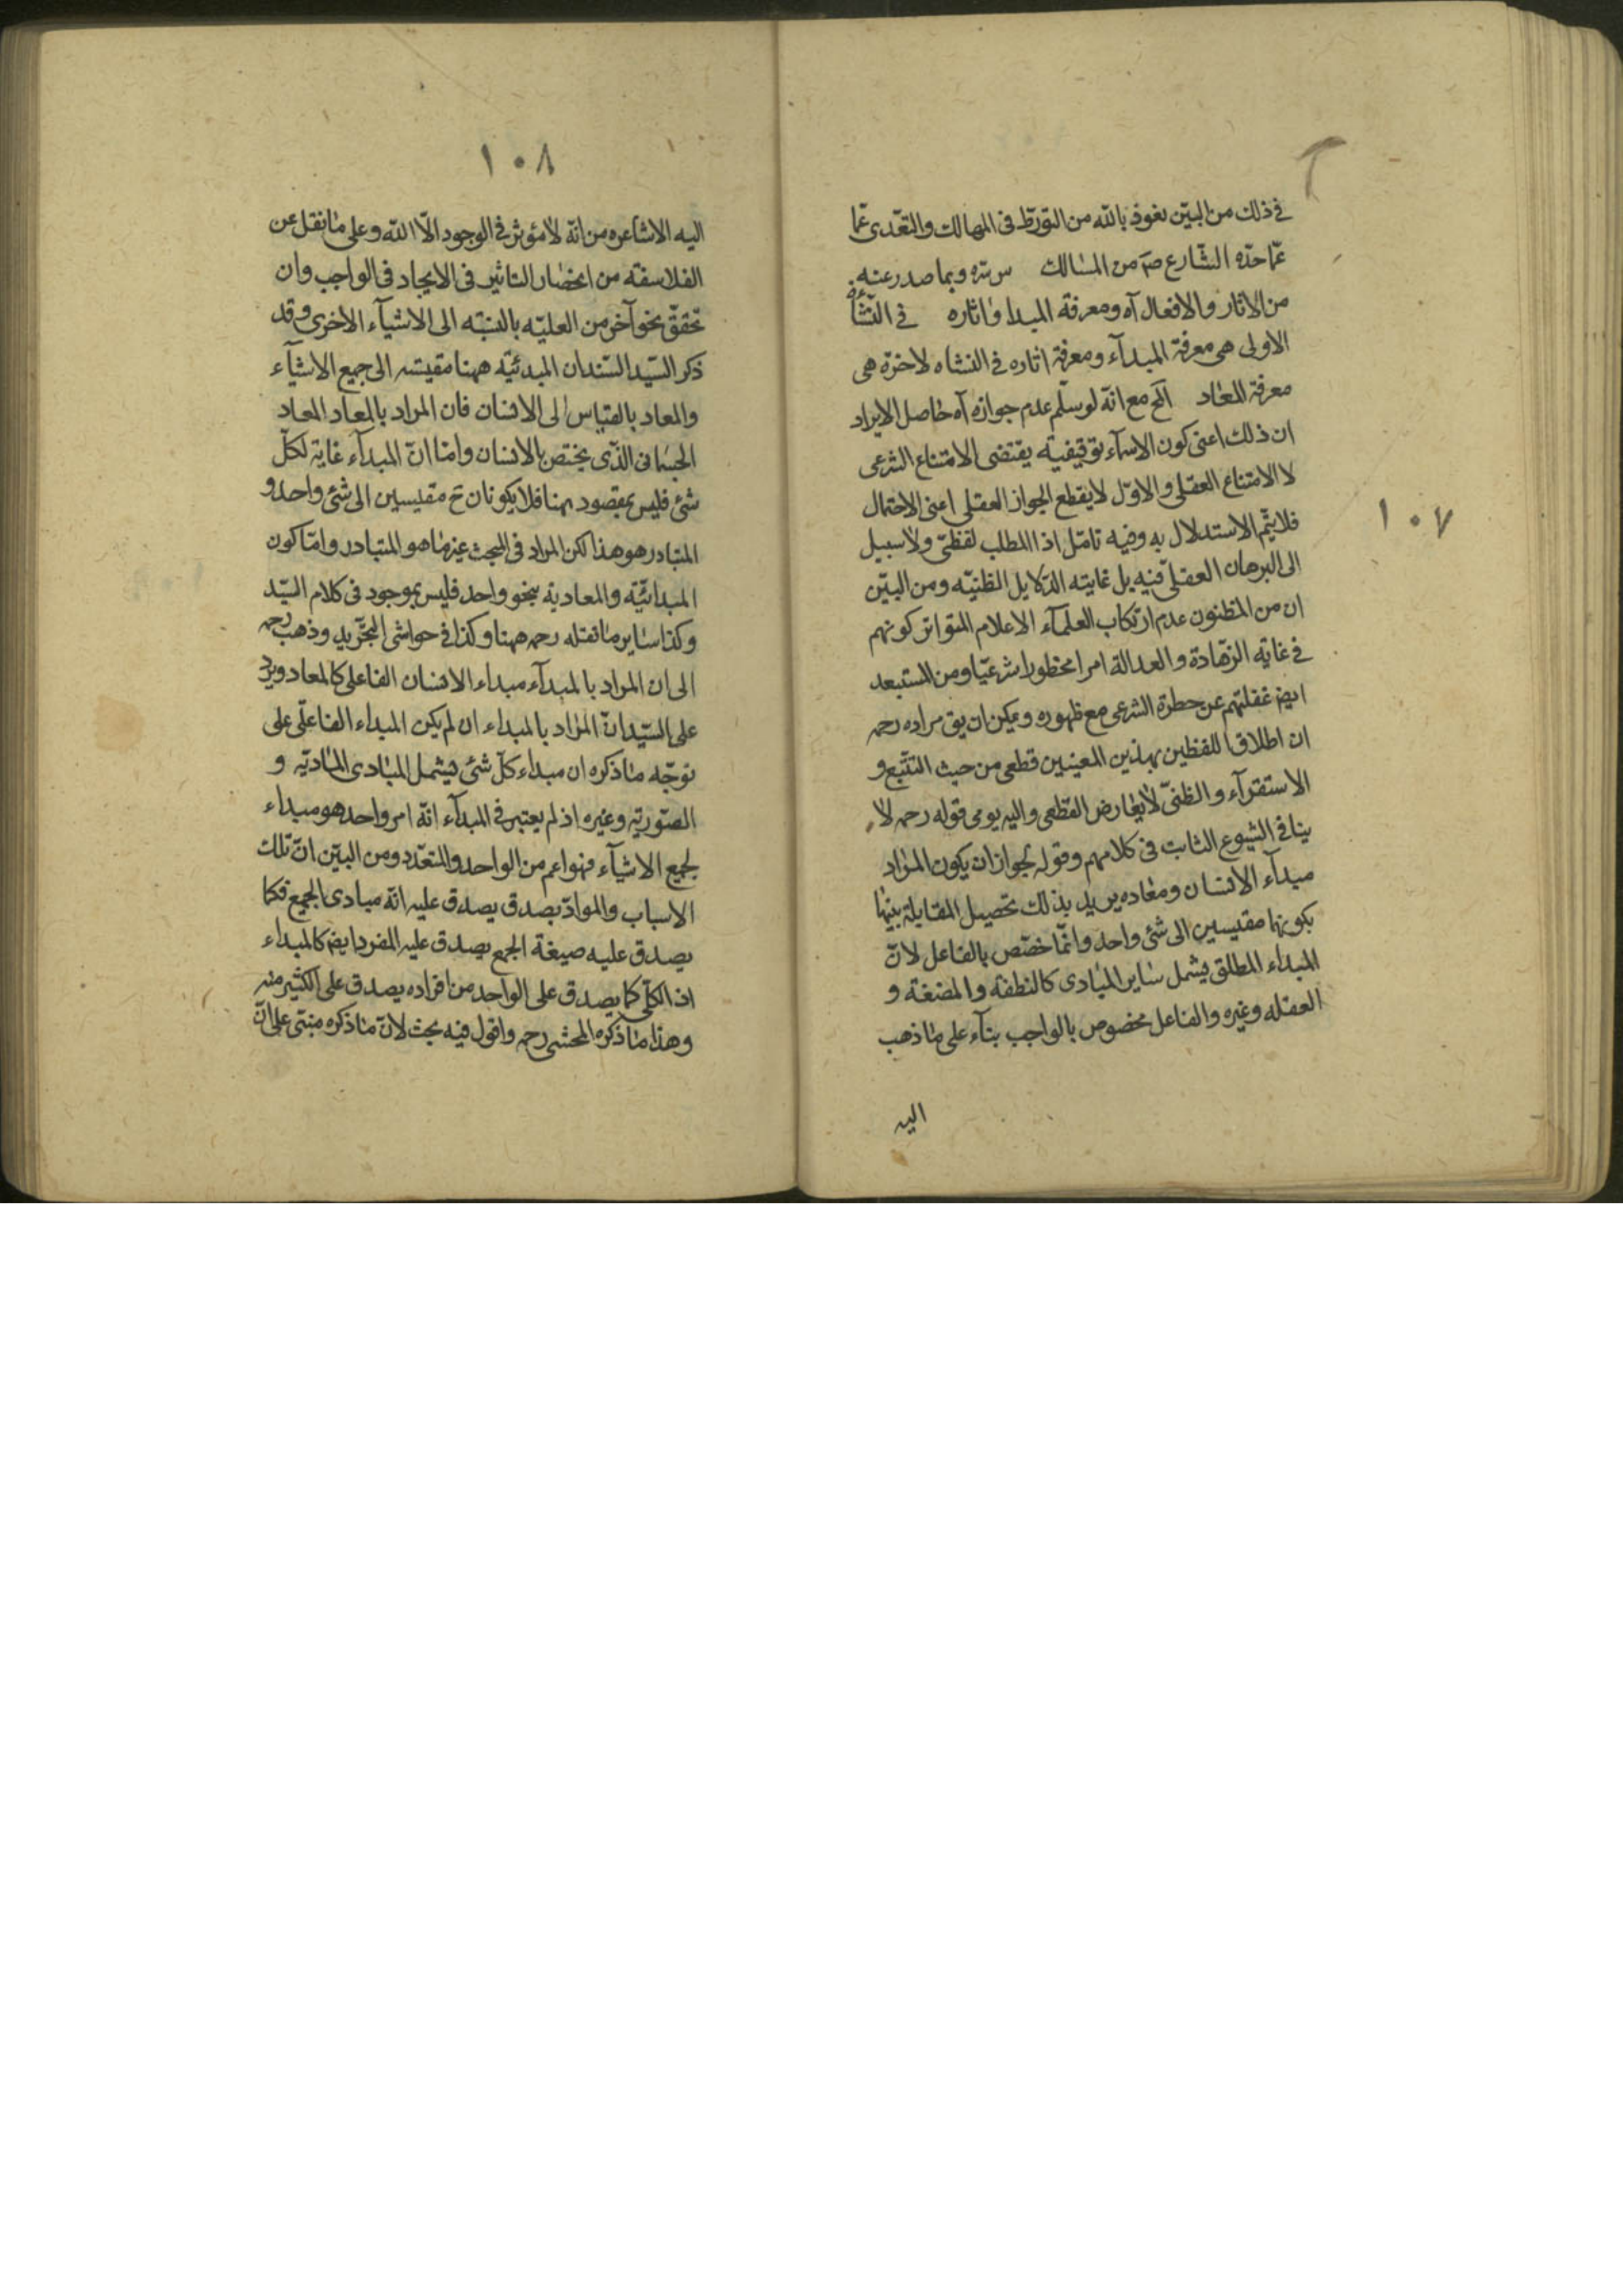 فى ذلك من البيّن نعوذ بالله من التورّط فى المهالك والتعّدى عّما
عّما حدّه الشّارع صۤ من المسٰالك وبما صدر عنه
من الاثار والافعال آه ومعرفة المبدا واثاره فى النّشأة
الاولى هى معرفة المبدآء ومعرفة اثاره فى النشاه لاخرة هى
معرفة المعٰاد الخ مع انّه لو سلّم عدم جوازه آه حٰاصل الايراد
ان ذلك اعنى كون الاسمآء توقيفيّه يقتضى الامتناع الشرعى
لا الامتناع العقلى والاوّل لا يقطع الجواز العقلى اعنى الاحتمال
فلا يتّم الاستدلال به وفيه تامّل اذ المطلب لفظىّ ولا سبيل
الى البرهان العقلى فيه بل غايته الدّلايل الظنيّه ومن البيّن
ان من المظنون عدم ارتكاب العلمآء الاعلام المتواتر كونهم
فى غاية الزهّادة والعدالة امرا محظورا شرعيّا ومن المستبعد
ايضۤ غفلتهم عن حظره الشرعى مع ظهوره ويمكن ان يق مراده رحمه
ان اطلاق اللفظين بهذين المعنيين قطعى من حيث التتّبع و
الاستقرآء والظنىّ لا يعٰارض القطعى واليه يومى قوله رحمه لا
ينافى الشيوع الثابت فى كلامهم وقوله لجواز ان يكون المرٰاد
مبدآء الانسٰان ومعٰاده يريد بذلك تحصيل المقابلة بينهمٰا
بكونهما مقيسين الى شئ واحد وانّما خصّص بالفاعل لانّ
المبداء المطلق يشمل سٰاير المبٰادى كالنطفة والمضغة و
العقله وغيره والفاعل مخصوص بالواجب بنآء على مٰا ذهب
اليه
١٠٧
١٠٨
اليه الاشاعره من انّه لا مؤثر فى الوجود الّا الله وعلى مٰا نقل عن
الفلاسفه من انحصٰار التاثير فى الايجاد فى الواجب وان
تحقق نحو آخر من العليّه بالنسبّه الى الاشيآء الاخرى وقد
ذكر السّيد السّند ان المبدئيّة ههنا مقيسة الى جميع الاشيآء
والمعاد بالقياس الى الانسان فان المراد بالمعاد المعاد
الجسمٰانى الذّى يختص بالانسان وامّا انّ المبدآء غاية لكلّ
شئ فليس بمقصود هنا فلا يكونان ح مقيسين الى شئ واحد و
المتبادر هو هذا لكن المراد فى البحث غير مٰا هو المتبادر وامّا كون
المبدائيّة والمعادية بنحو واحد فليس بموجود فى كلام السيّد
وكذا سٰاير مٰا نقله رحمه ههنا وكذا فى حواشى التجّريد وذهب رحمه
الى ان المراد بالمبدآء مبداء الانسان الفاعلى كالمعاد ويرد
على السيّد انّ المرٰاد بالمبداء ان لم يكن المبداء الفاعلى على
توجّه مٰا ذكره ان مبداء كلّ شئ فيشمل المبٰادى المٰاديّه و
الصّوريّه وغيره اذ لم يعتبر فى المبدآء انّه امر واحد هو مبداء
لجميع الاشيآء فهو اعم من الواحد والمتعّدد ومن البيّن انّ تلك
الاسباب والموادّ يصدق يصدق عليه انّه مبادى الجميع فكما
يصدق عليه صيغة الجمع يصدق عليه المفرد ايضۤ كالمبداء
اذ الكلّى كما يصدق على الواحد من افراده يصدق على الكثير منه
وهذا مٰا ذكره المحشى رحمه واقول فيه بحث لانّ مٰا ذكره مبتنى على انّ